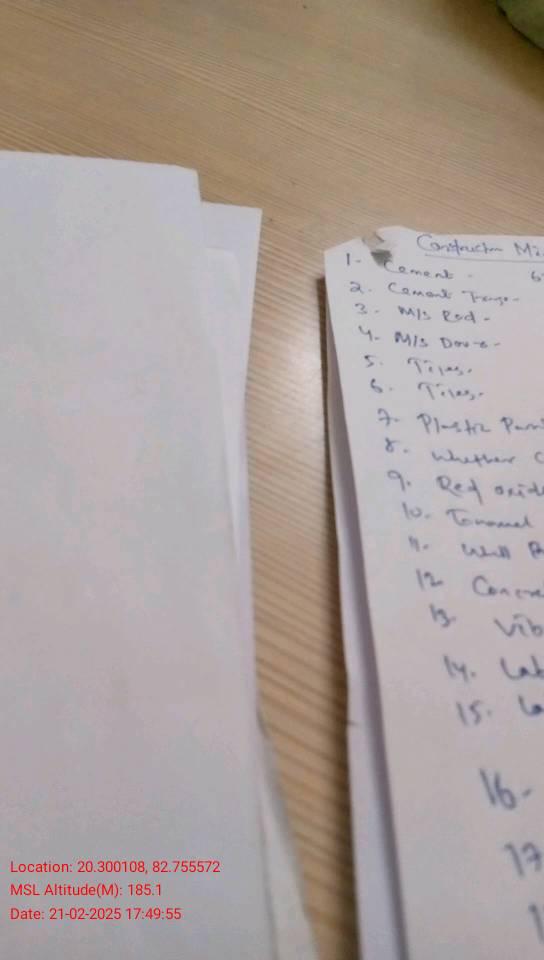 Construction
1- Cement -
2. Cement
3. M/s Rod -
4. M/s
5. Tiles.
6. Tiles.
7. Plastic
8. Whether C
9. Red oxide
10.
11. Wall P
12. Concre
13. Vib
14. Lab
15. La
16-
17
Location: 20.300108, 82.755572
MSL Altitude(M): 185.1
Date: 21-02-2025 17:49:55